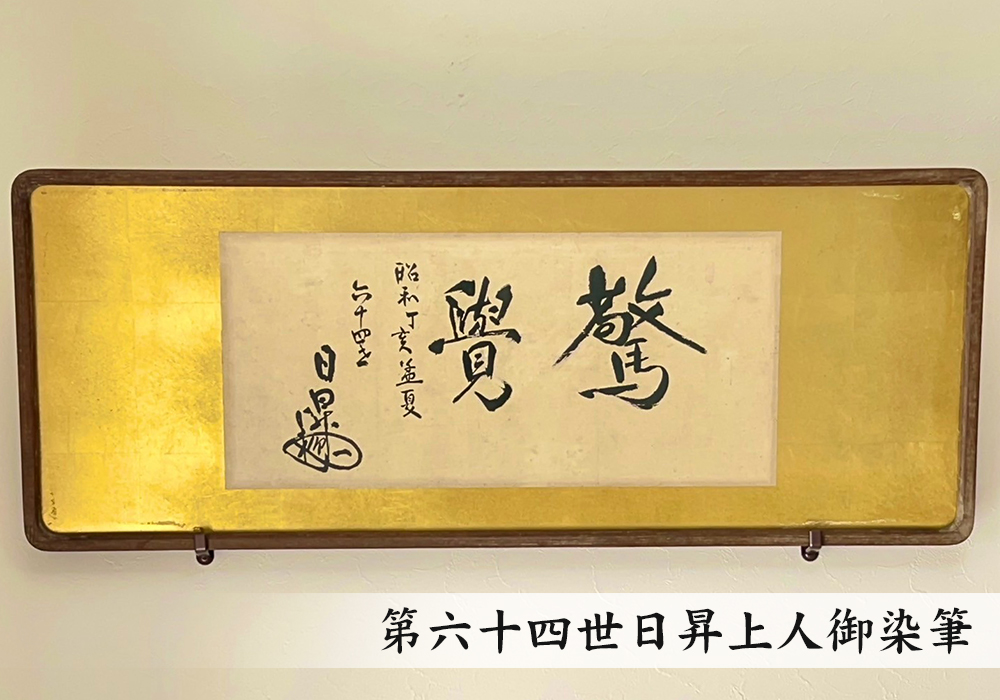 驚
覺
昭和丁亥孟夏
六十四世
日昇
第六十四世日昇上人御染筆